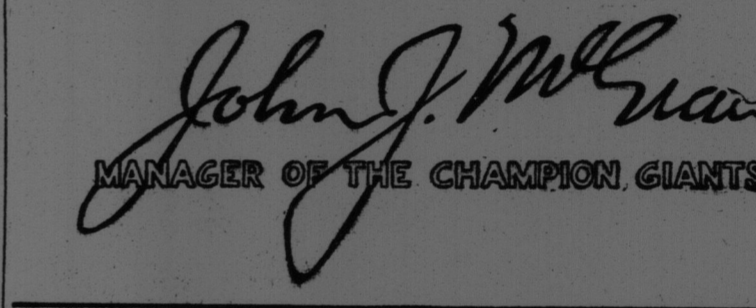 John J. McGraw
MANAGER OF THE CHAMPION GIANTS